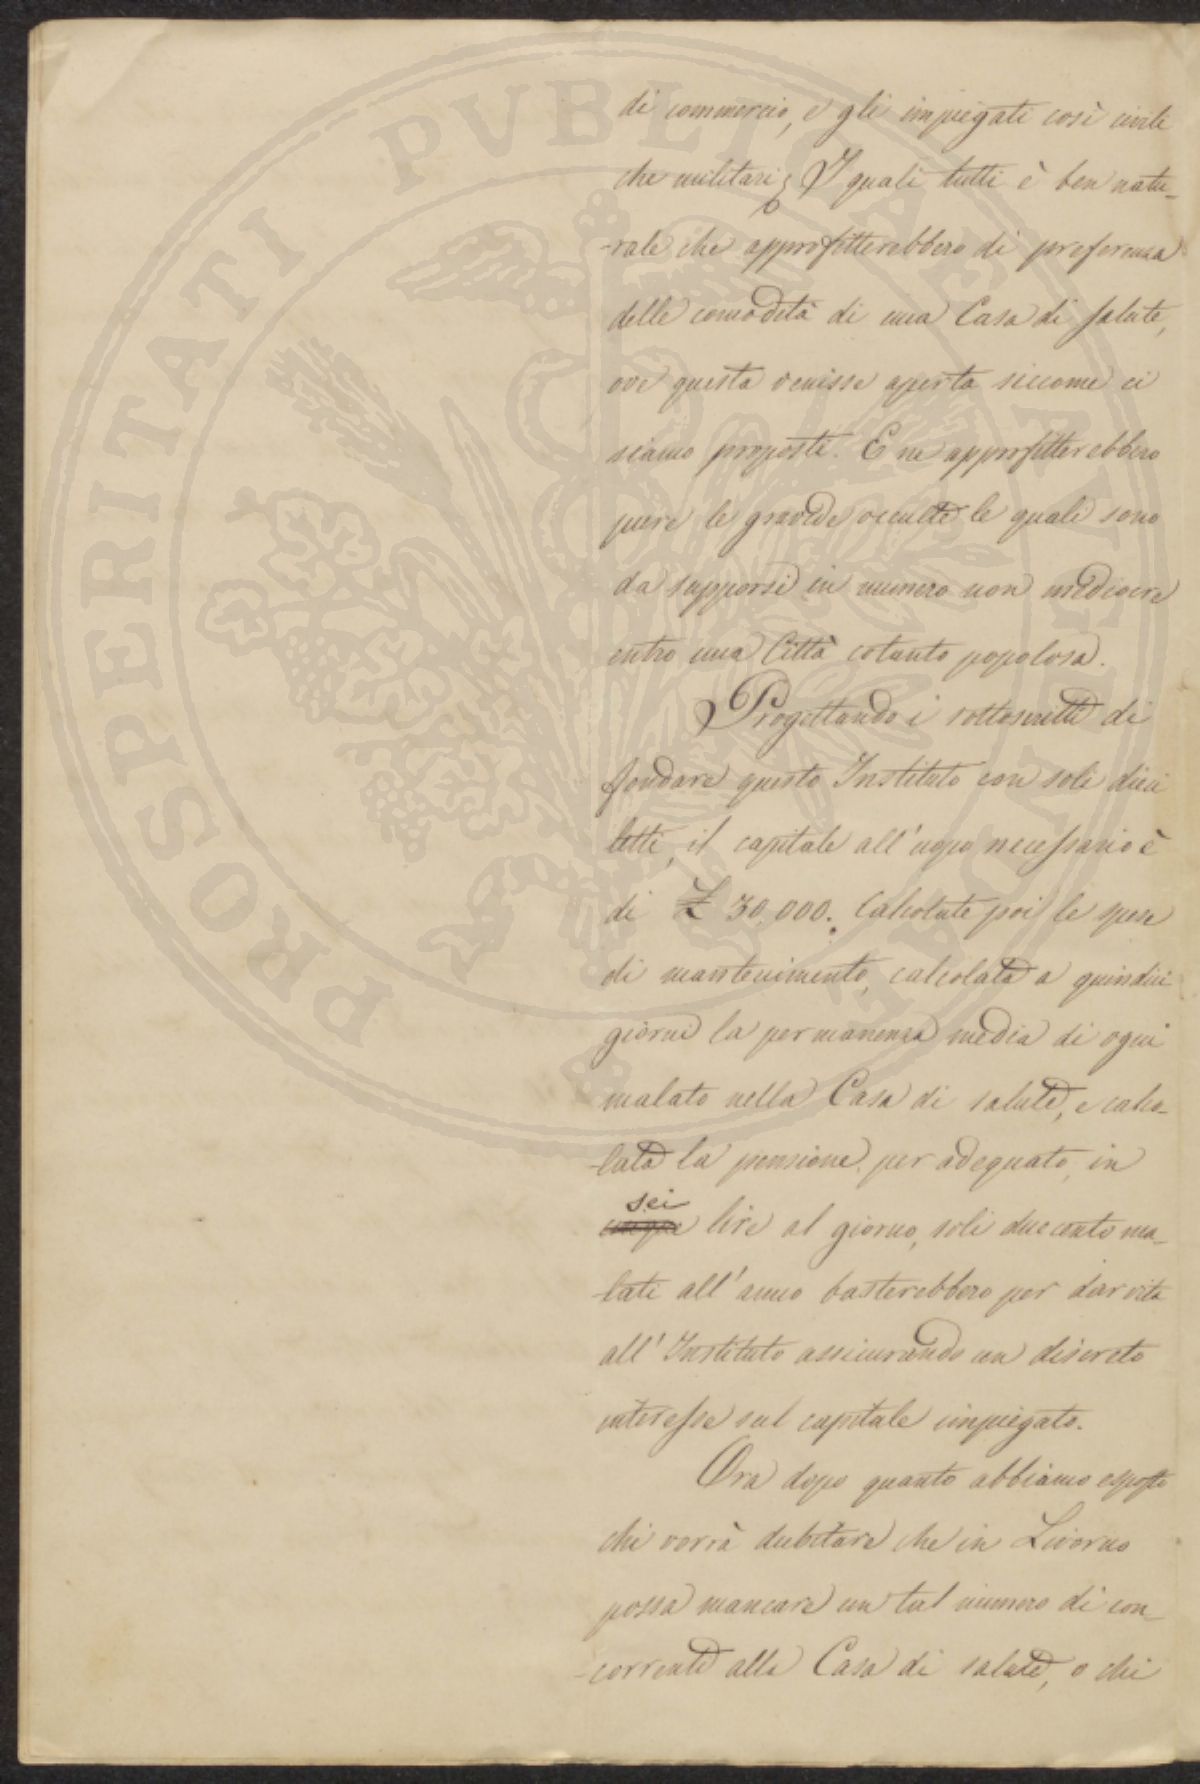 di commercio, e gli impiegati così civili
che militari; I quali tutti è ben natu-
-rale che approfitterebbero di preferenza
delle comodità di una Casa di salute,
ove questa venisse aperta siccome ci
siamo proposti. E ne approfitterebbero
pure le gravide occulte le quali sono
da supporsi in numero non mediocre
entro una Città cotanto popolosa.
Progettando i sottoscritti di
fondare questo Instituto con soli dieci
letti, il capitale all'uopo necessario è
di £ 30,000. Calcolate poi le spese
di mantenimento, calcolata a quindici
giorni la permanenza media di ogni
malato nella Casa di salute, e calco-
-lata la pensione, per adequato, in
sei
cinque lire al giorno, soli duecento ma-
-lati all'anno basterebbero per dar vita
all'Instituto assicurando un discreto
interesse sul capitale impiegato.
Ora dopo quanto abbiamo esposto
chi vorrà dubitare che in Livorno
possa mancare un tal numero di con-
-correnti alla Casa di salute, o chi
PROSPERITATI PVBLICAE AVGENDAE